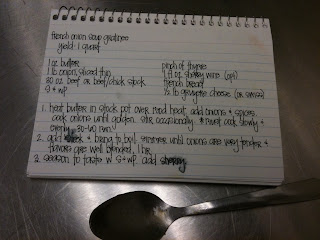 French onion soup gratinee
yield: 1 quart
1 oz butter
1 lb onion, sliced thin
30 oz beef or beef/chick stock
S + WP
pinch of thyme
4 fl oz sherry wine (opt)
french bread
1/2 lb gruyere cheese (or swiss)
1. Heat butter in stock pot over mod heat, add onions + spices,
cook onions until golden. Stir occasionally. * must cook slowly +
evenly 30-40 min.
2. add + bring to boil. simmer until onions are very tender +
flavors are well blended. 1 hr.
3. season to taste w/ S + WP. add sherry